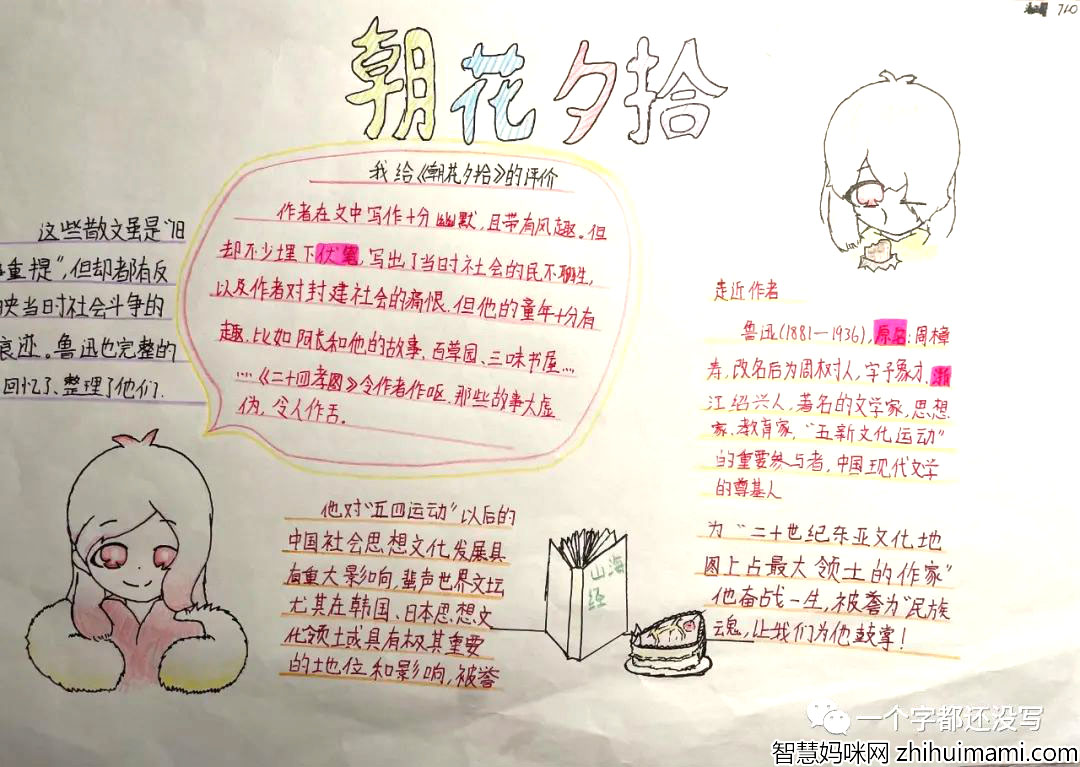 710
朝花夕拾
我给《朝花夕拾》的评价
作者在文中写作十分幽默，且带有风趣。但
却不少埋下伏笔，写出了当时社会的民不聊生，
以及作者对封建社会的痛恨。但他的童年十分有
趣，比如阿长和他的故事，百草园、三味书屋…
…《二十四孝图》令作者作呕，那些故事太虚
伪，令人作舌。
这些散文虽是“旧
重提”，但却都有反
映当时社会斗争的
痕迹。鲁迅也完整的
回忆了、整理了他们.
走近作者
鲁迅(1881—1936)，原名:周樟
寿，改名后为周树人，字予象才，浙
江绍兴人，著名的文学家，思想
家、教育家，“五新文化运动”
的重要参与者，中国现代文学
的尊基人
他对“五四运动”以后的
中国社会思想文化发展具
有重大影响，蜚声世界文坛
尤其在韩国、日本思想文
化领土或具有极其重要
的地位和影响，被誉
为“二十世纪东亚文化地
图上占最大领土的作家”
他奋战一生，被誉为“民族
魂，让我们为他鼓掌！
山海
经
一个字都还没写
智慧妈咪网 zhihuimami.com